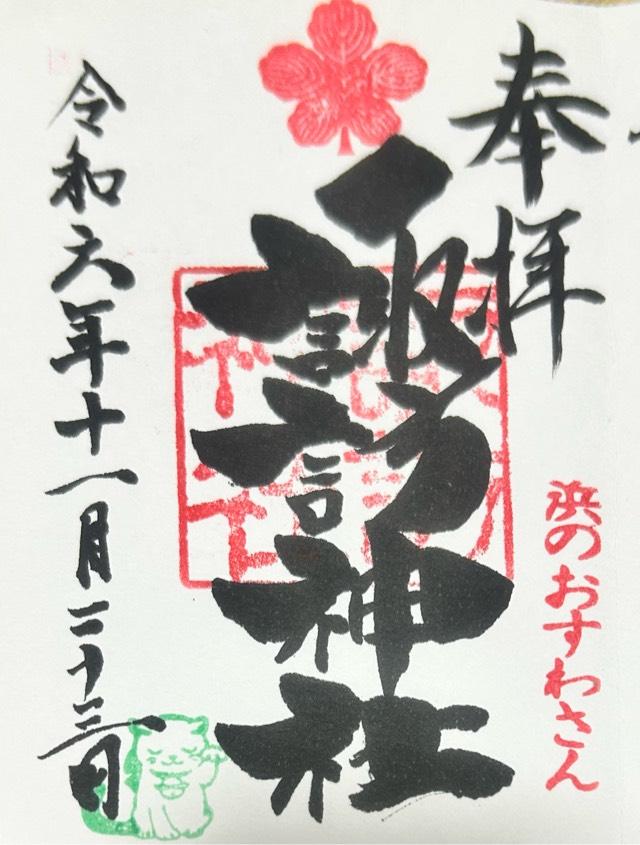 奉拝
浜のおすわさん
諏訪神社
令和六年十一月二十三日